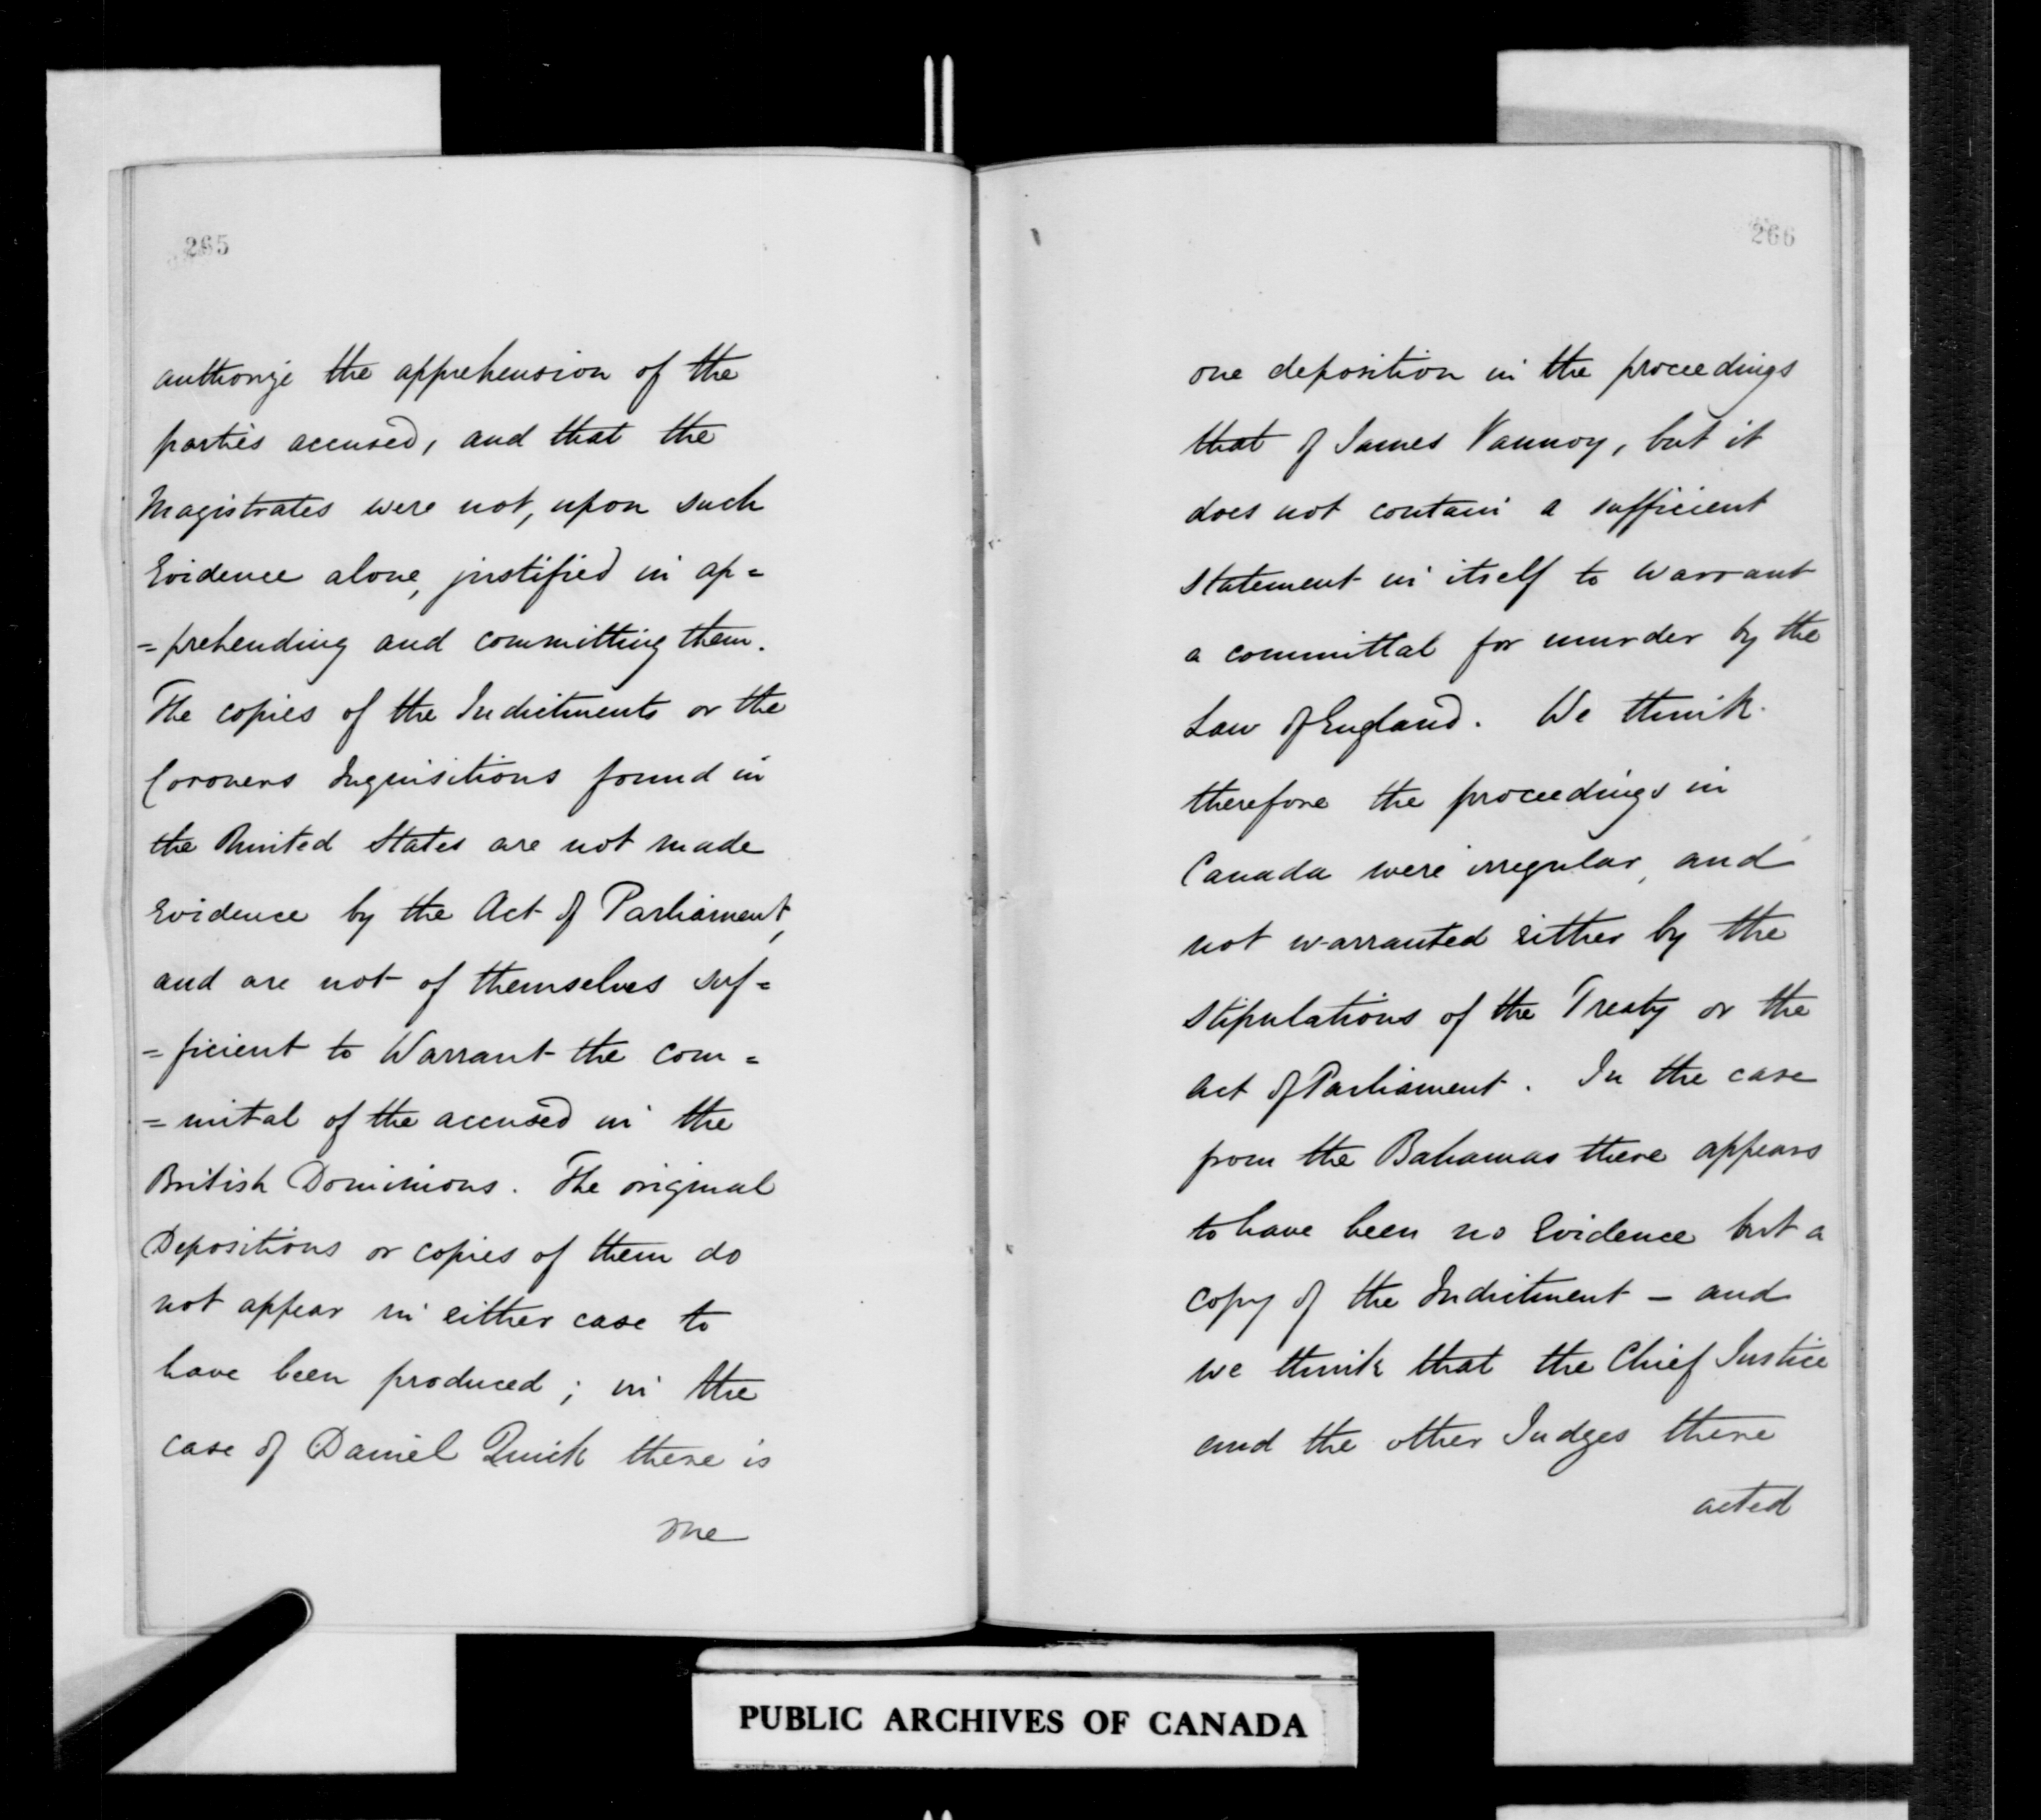 265
authorize the apprehension of the
parties accused, and that the
Magistrates were not, upon such
Evidence alone, justified in ap=
=prehending and committing them.
The copies of the Indictments or the
Coroners Inquisitions found in
the United States are not made
Evidence by the Act of Parliament,
and are not of themselves suf=
=ficient to Warrant the com=
=mital of the accused in the
British Dominions. The original
Depositions or copies of them do
not appear in either case to
have been produced; in the
case of Daniel Quick there is
one
266
one deposition in the proceedings
that of James Vannoy, but it
does not contain a sufficient
statement in itself to warrant
a committal for murder by the
Law of England. We think
therefore the proceedings in
Canada were irregular, and
not warranted either by the
stipulations of the Treaty or the
Act of Parliament. In the case
from the Bahamas there appears
to have been no Evidence but a
copy of the Indictment – and
we think that the Chief Justice
and the other Judges there
acted
PUBLIC ARCHIVES OF CANADA